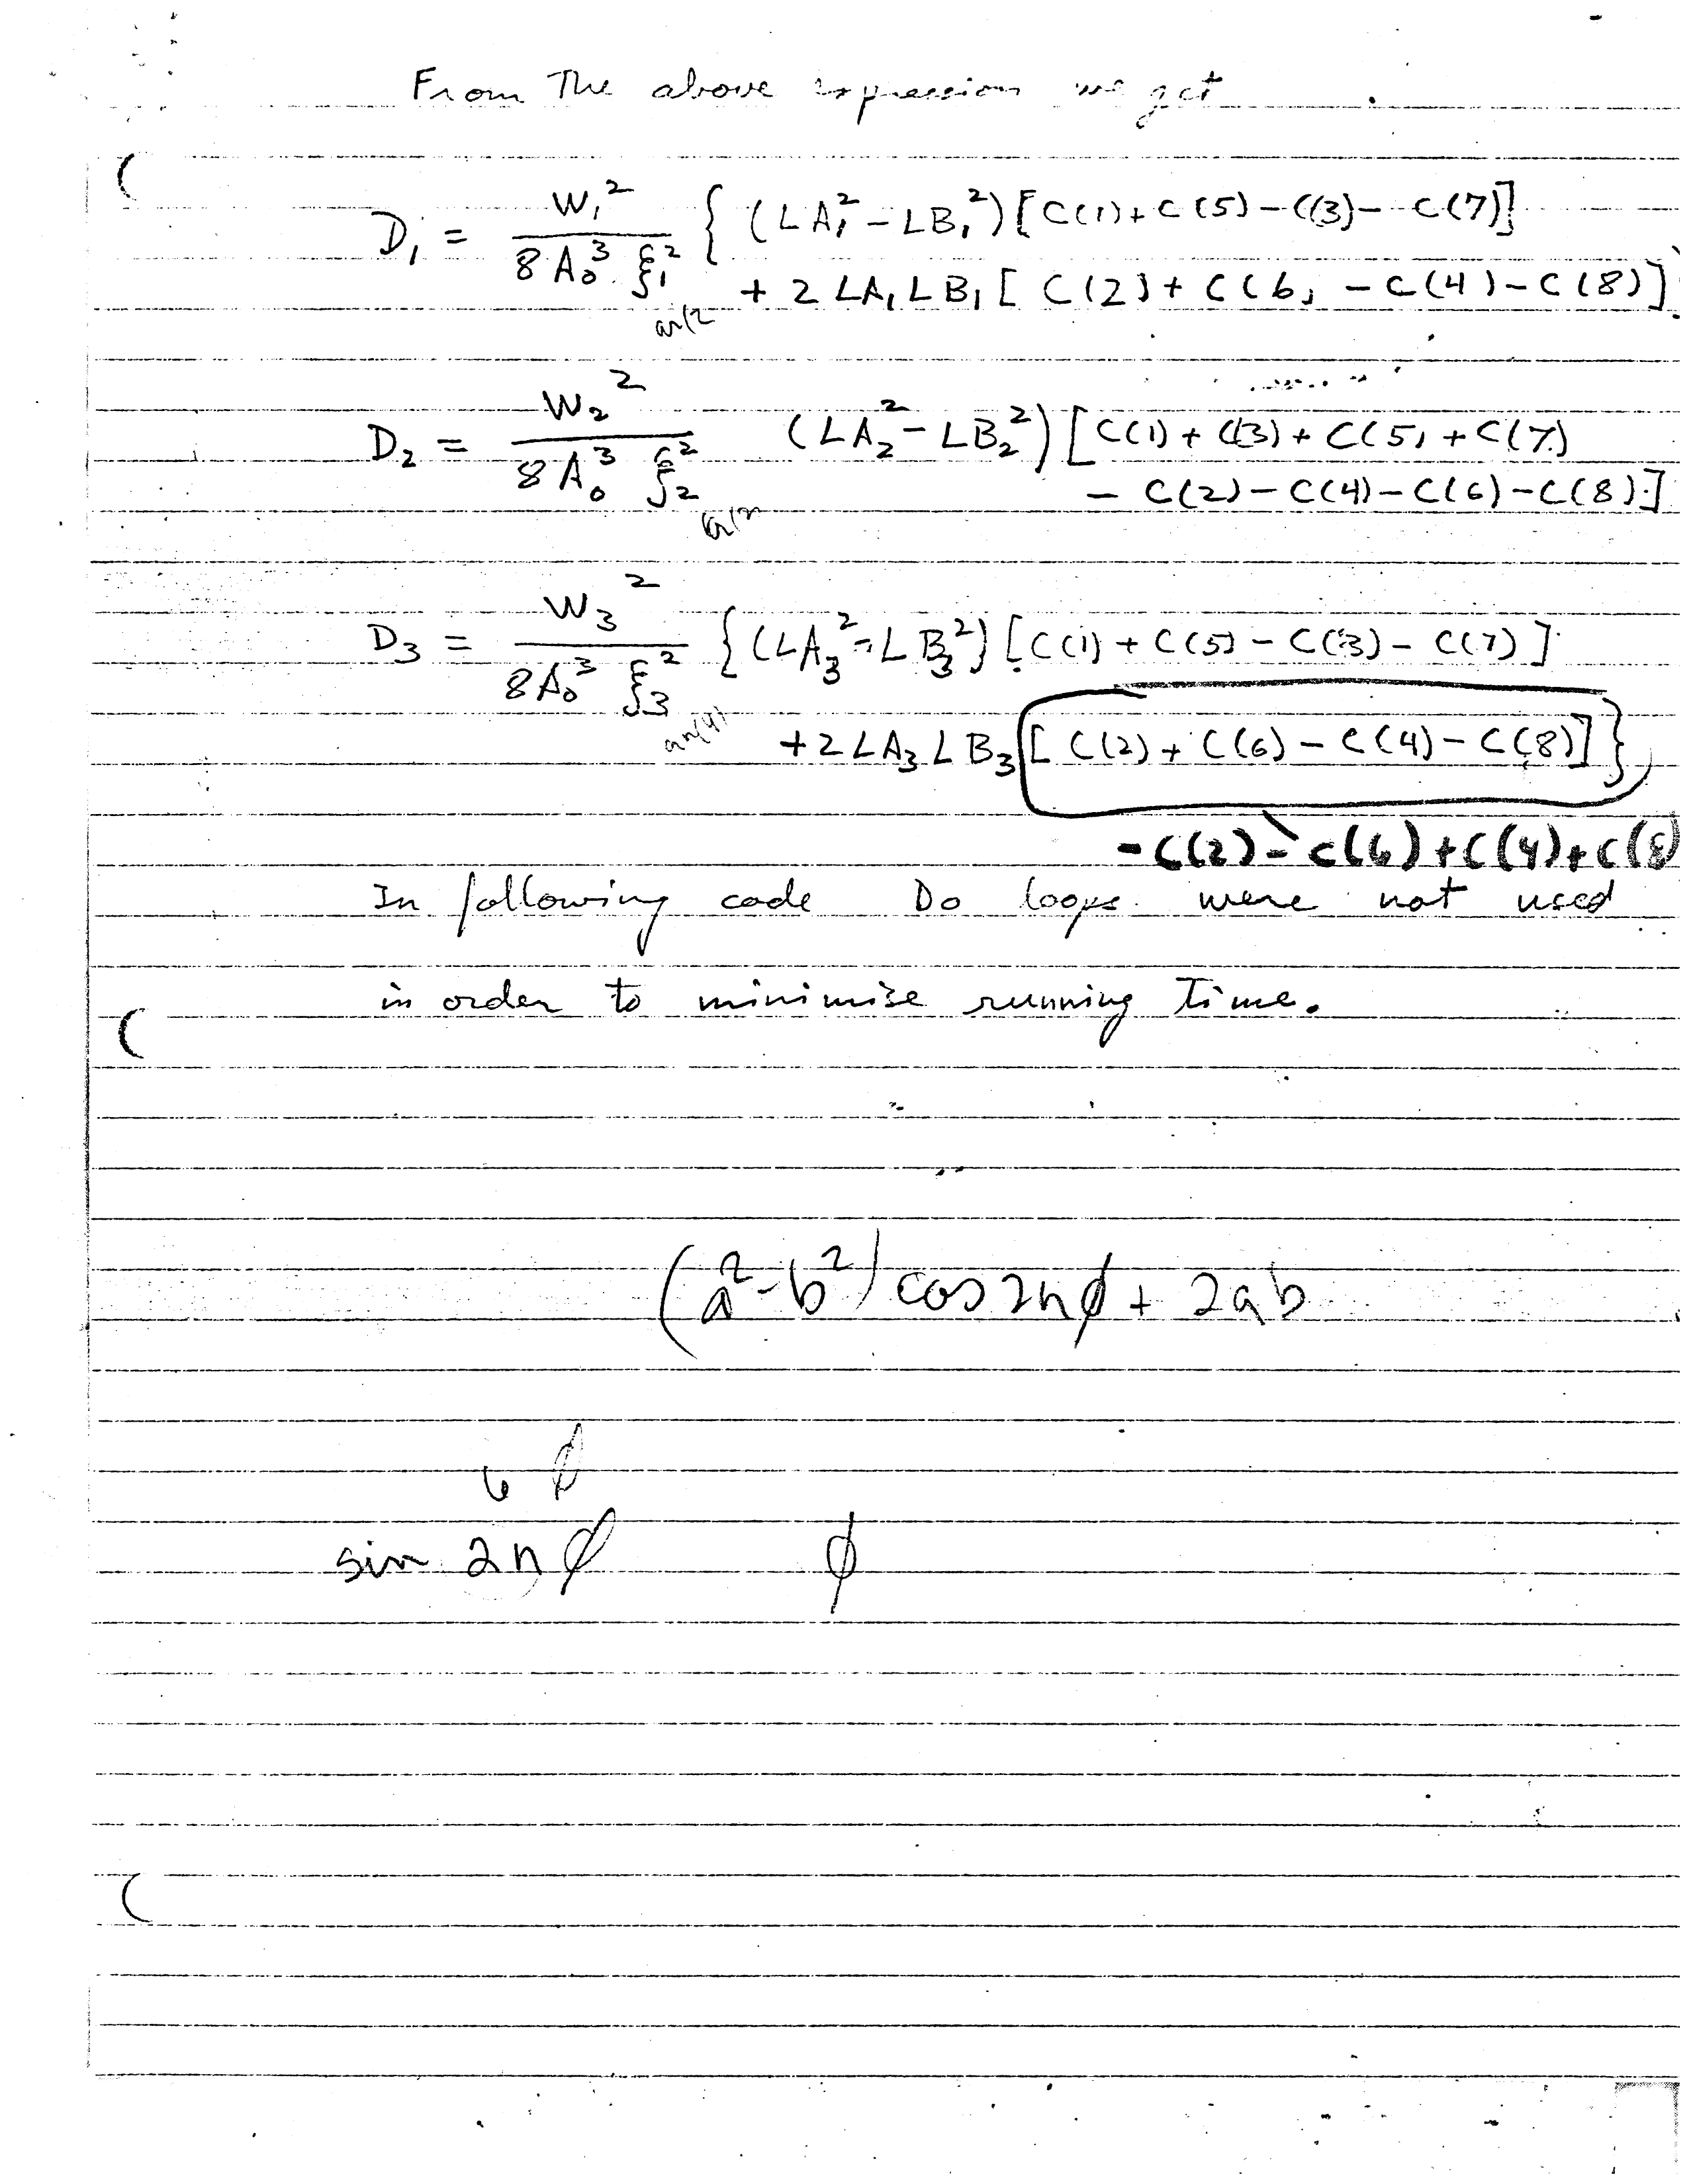 From The above expression we get
D₁ = W₁² / 8 A₀³ ξ₁² { (LA₁² - LB₁²) [C(1) + C(5) - C(3) - C(7)]
+ 2 LA₁ LB₁ [ C(2) + C(6) - C(4) - C(8)]
D₂ = W₂² / 8 A₀³ ξ₂² (LA₂² - LB₂²) [C(1) + C(3) + C(5) + C(7)
- C(2) - C(4) - C(6) - C(8)]
D₃ = W₃² / 8 A₀³ ξ₃² { (LA₃² - LB₃²) [C(1) + C(5) - C(3) - C(7)]
+ 2 LA₃ LB₃ [ C(2) + C(6) - C(4) - C(8)] }
- C(2) - C(6) + C(4) + C(8)
In following code Do loops were not used
in order to minimise running Time.
(a² - b²) cos 2nφ + 2ab
6 φ
sin 2nφ φ